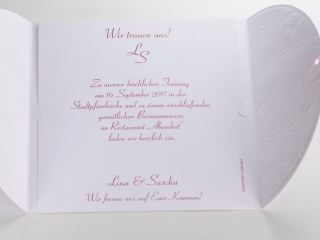 Wir trauen uns!
LS
Zu unserer kirchlichen Trauung
am 16. September 2017 in der
Stadtpfarrkirche und zu einem anschließenden
gemütlichen Beisammensein
im Restaurant „Abendrot“
laden wir herzlich ein.
Lina & Sascha
Wir freuen uns auf Euer Kommen!